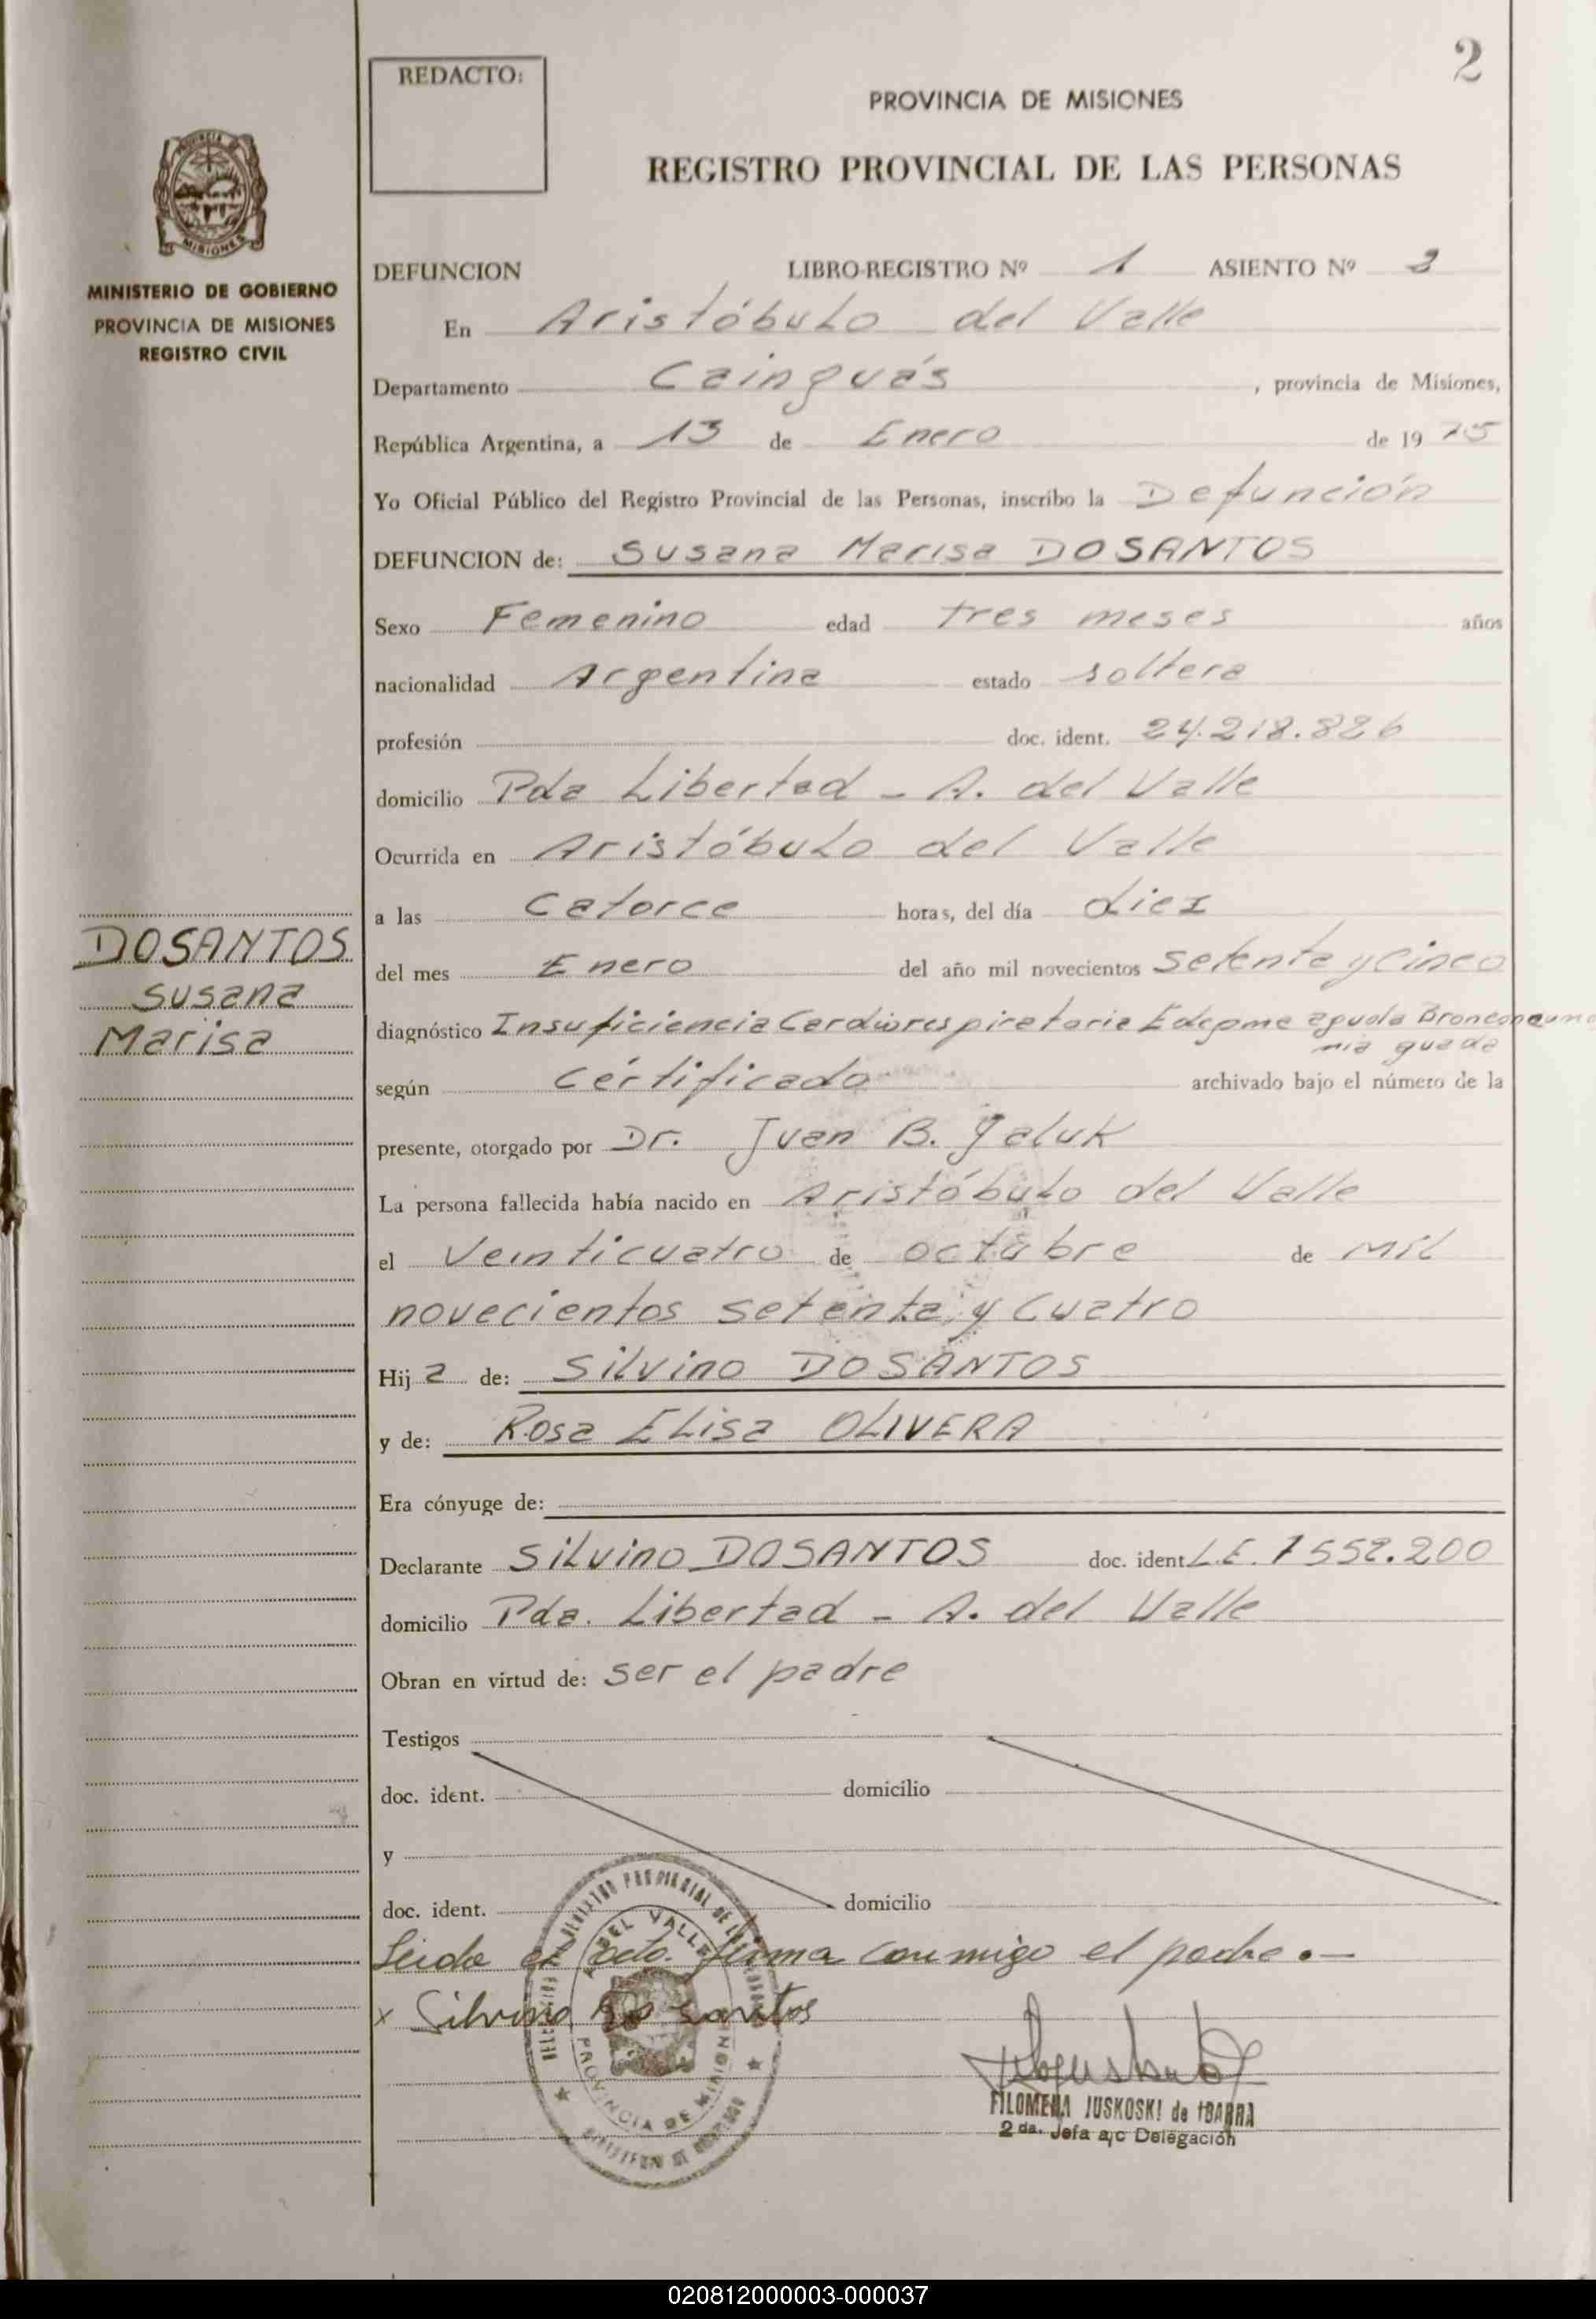 2
REDACTO:
PROVINCIA DE MISIONES
REGISTRO PROVINCIAL DE LAS PERSONAS
PROVINCIA
MISIONES
MINISTERIO DE GOBIERNO
PROVINCIA DE MISIONES
REGISTRO CIVIL
DEFUNCION LIBRO-REGISTRO Nº 1 ASIENTO Nº
En Aristóbulo del Valle
Departamento Cainguás, provincia de Misiones,
República Argentina, a 13 de Enero de 1975
Yo Oficial Público del Registro Provincial de las Personas, inscribo la Defunción
DEFUNCION de: Susana Marisa DOSANTOS
Sexo Femenino edad tres meses años
nacionalidad Argentina estado soltera
profesión doc. ident. 24.218.826
domicilio Pda Libertad - A. del Valle
Ocurrida en Aristóbulo del Valle
a las Catorce horas, del día diez
del mes Enero del año mil novecientos setenta y cinco
diagnóstico Insuficiencia Cardiorespiratorie
según Certificado archivado bajo el número de la
presente, otorgado por Dr. Juan B. Galuk
La persona fallecida había nacido en Aristóbulo del Valle
el Veinticuatro de octubre de mil
novecientos setenta y cuatro
Hija de: Silvino DOSANTOS
y de: Rosa Elisa OLIVERA
Era cónyuge de:
Declarante Silvino DOSANTOS doc. ident. L.E. 7552.200
domicilio Pda. Libertad - A. del Valle
Obran en virtud de: ser el padre
Testigos
doc. ident. domicilio
y
doc. ident. domicilio
Leida el acto. firma conmigo el padre.—
x Silvino Do santos
FILOMENA JUSKOSKI de IBARRA
2 da. Jefa a/c Delegación
DOSANTOS
Susana
Marisa
REGISTRO PROVINCIAL DE
DEL VALLE
PROVINCIA DE MISIONES
020812000003-000037